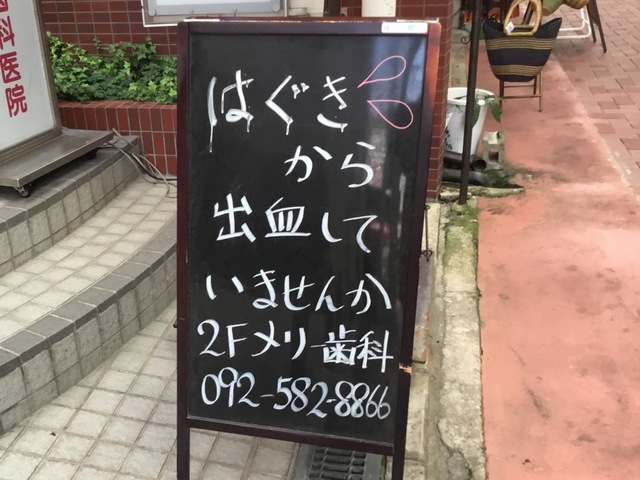 はぐき
から
出血して
いませんか
2Fメリー歯科
092-582-8866
歯科医院